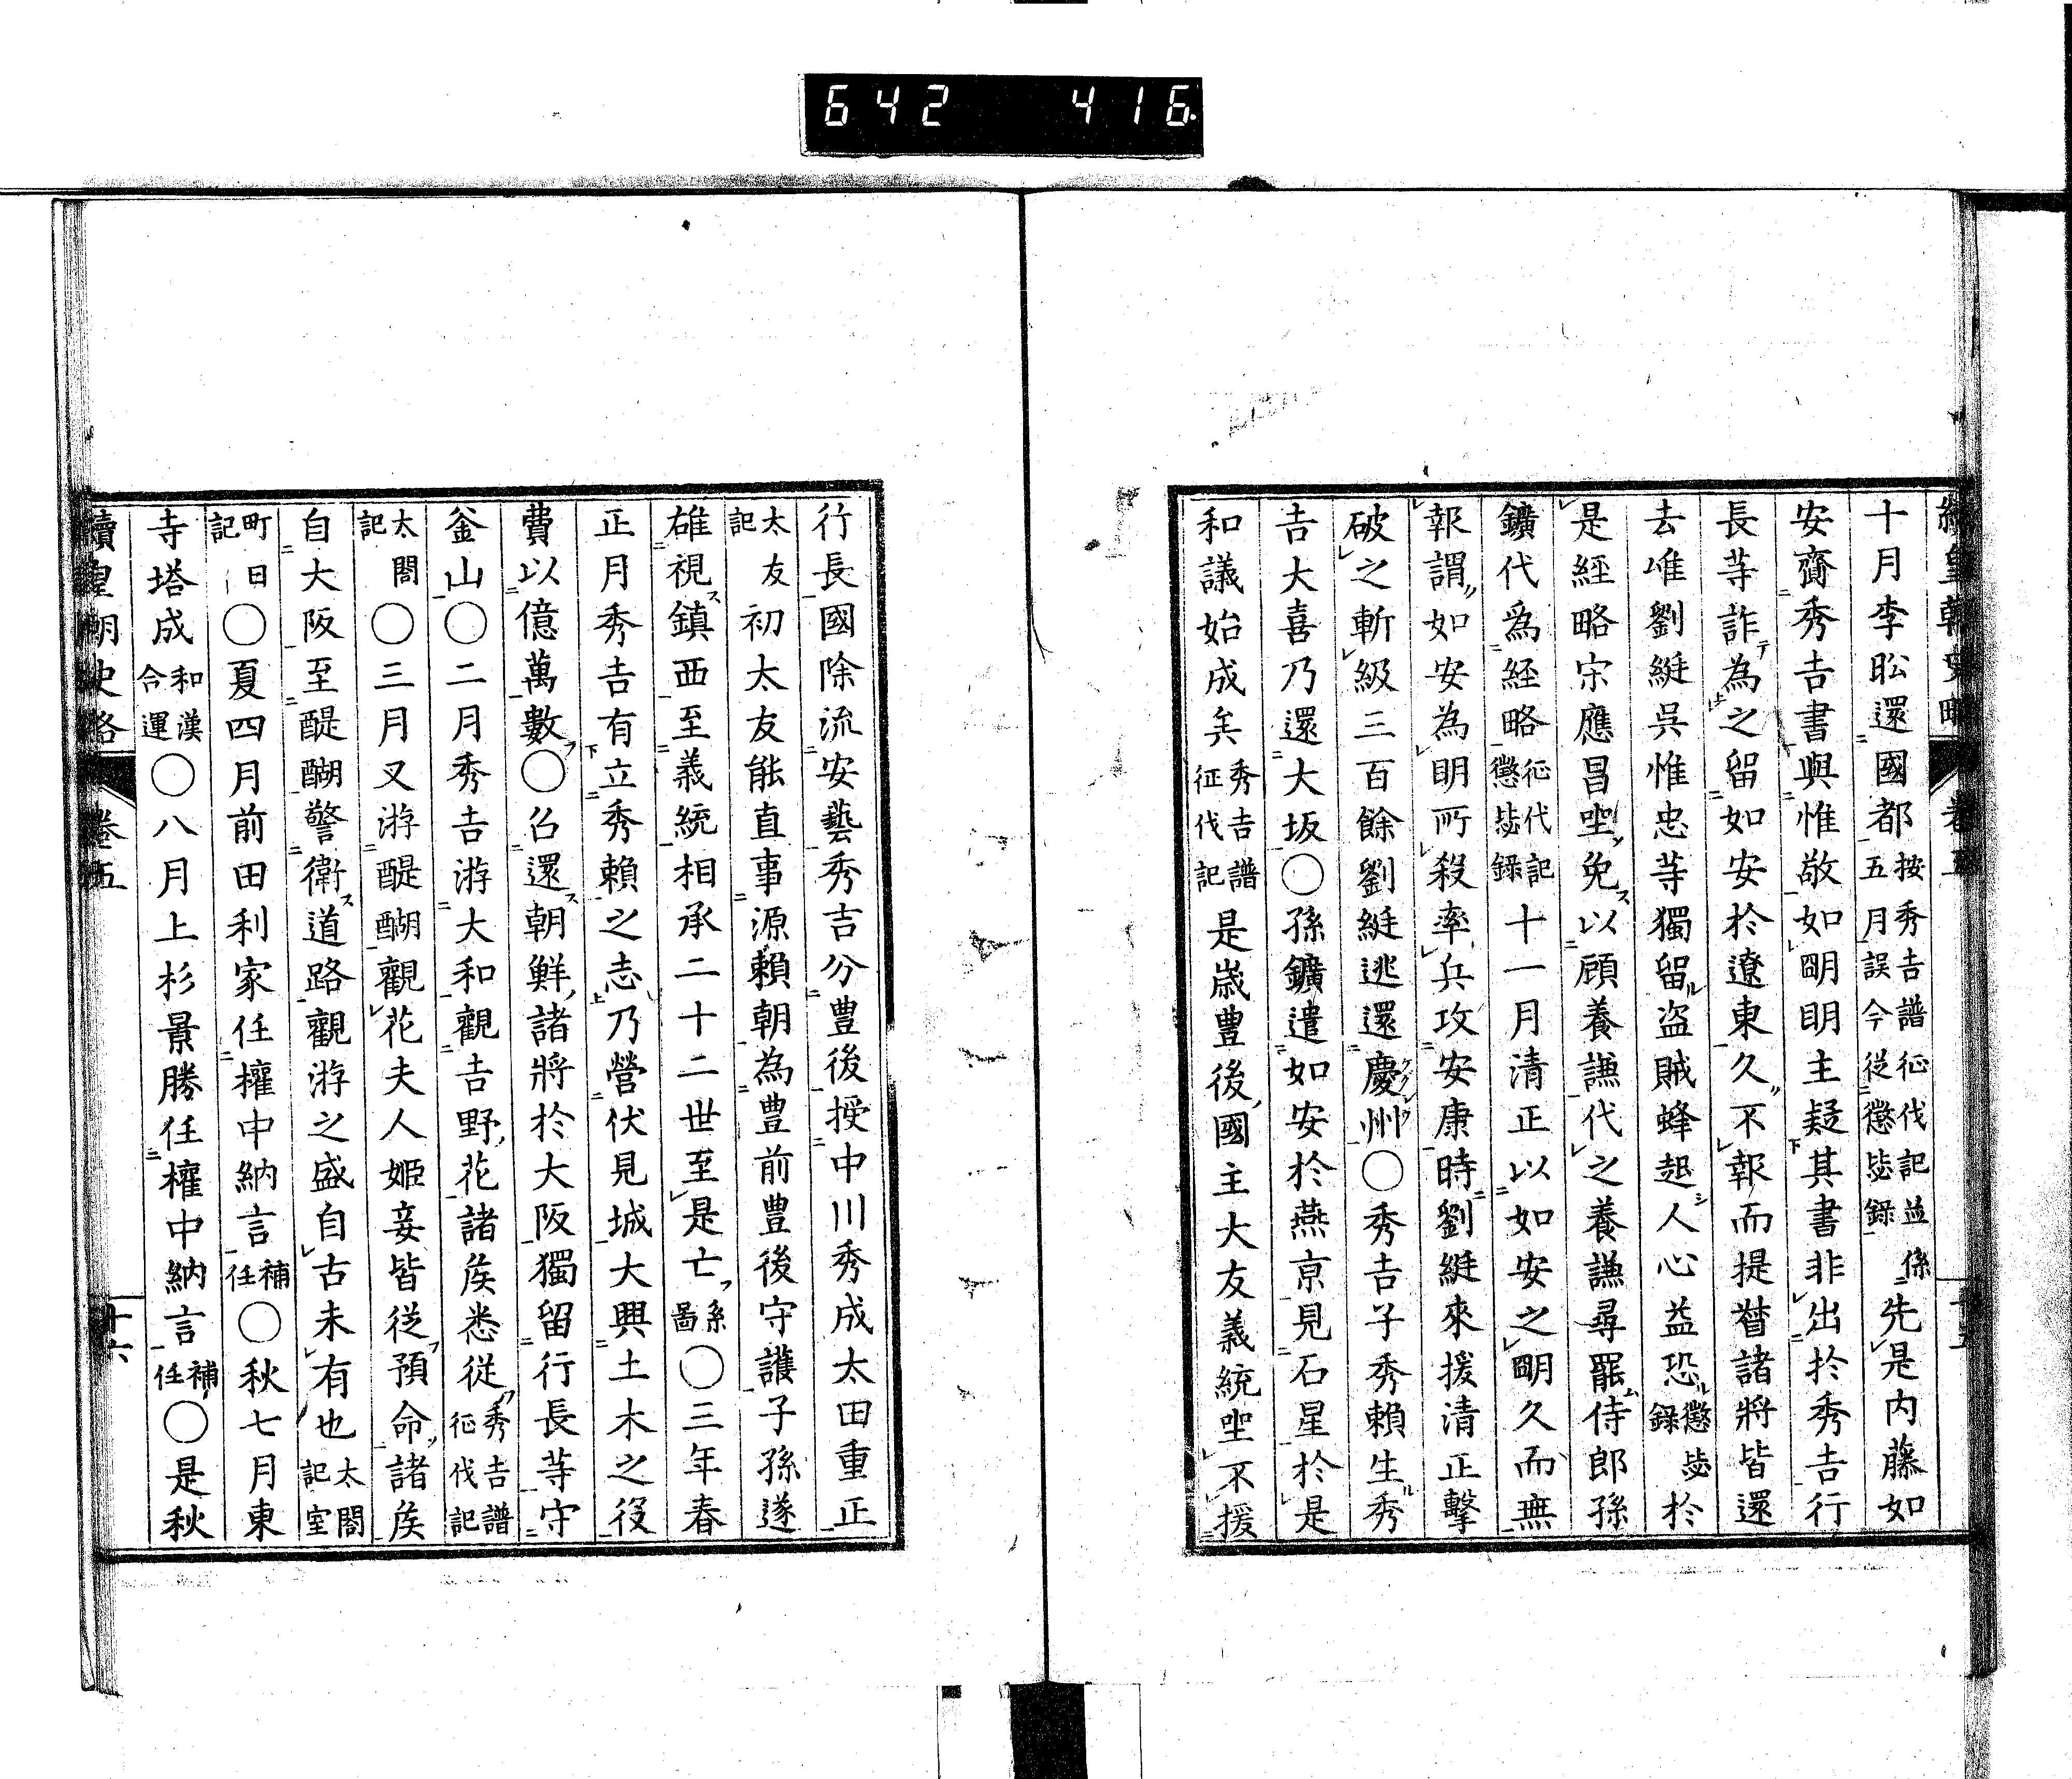 642 416
續皇朝史略 卷五 十五
十月李昖還國都按秀吉譜征伐記並係五月誤今從懲毖錄先是内藤如
安齎秀吉書與惟敬如明明主疑其書非出於秀吉行
長等詐為之留如安於遼東久不報而提督諸將皆還
去唯劉綎吳惟忠等獨留盗賊蜂起人心益恐懲毖錄於
是經略宋應昌坐免以顧養謙代之養謙尋罷侍郎孫
鑛代爲經略征伐記懲毖錄十一月清正以如安之明久而無
報謂如安為明所殺率兵攻安康時劉綎來援清正擊
破之斬級三百餘劉綎逃還慶州○秀吉子秀賴生秀
吉大喜乃還大坂○孫鑛遣如安於燕京見石星於是
和議始成矣秀吉譜征伐記是歳豊後國主大友義統坐不援
行長國除流安藝秀吉分豊後授中川秀成太田重正
太友記初太友能直事源賴朝為豊前豊後守護子孫遂
雄視鎮西至義統相承二十二世至是亡系圖○三年春
正月秀吉有立秀賴之志乃營伏見城大興土木之役
費以億萬數○召還朝鮮諸將於大阪獨留行長等守
釜山○二月秀吉游大和觀吉野花諸矦悉從秀吉譜征伐記
太閤記○三月又游醍醐觀花夫人姬妾皆從預命諸矦
自大阪至醍醐警衛道路觀游之盛自古未有也太閤記室
町日記○夏四月前田利家任權中納言補任○秋七月東
寺塔成和漢合運○八月上杉景勝任權中納言補任○是秋
續皇朝史略 卷五 十六